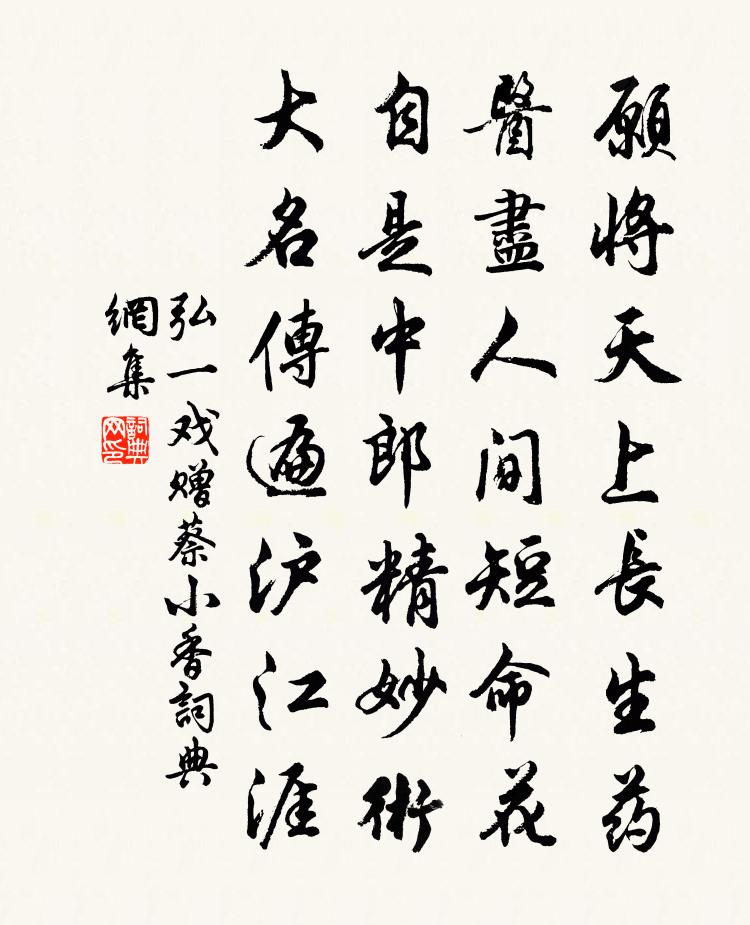 願將天上長生药
醫盡人间短命花
自是中郎精妙術
大名傳遍沪江涯
弘一戏赠蔡小香詞典
網集
詞典
网印